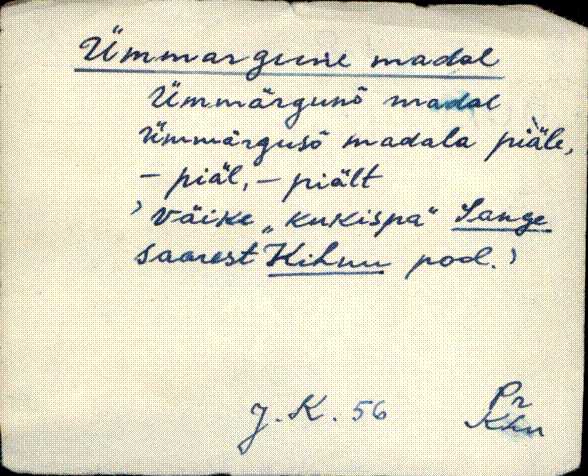 Ümmargune madal
Ümmärgunõ madal
Ümmärgusõ madala piäle,
– piäl, – piält
' väike „kukispa" Sange
saarest Kihnu pool.'
J. K. 56
Pr
Khn